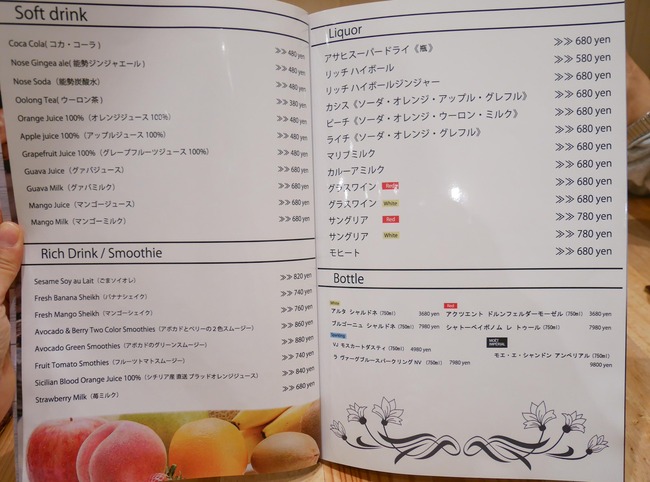 Soft drink
Coca Cola( コカ・コーラ ) ≫≫ 480 yen
Nose Gingea ale( 能勢ジンジャエール ) ≫≫ 480 yen
Nose Soda（能勢炭酸水） ≫≫ 480 yen
Oolong Tea( ウーロン茶 ) ≫≫ 380 yen
Orange Juice 100%（オレンジジュース 100%） ≫≫ 480 yen
Apple juice 100%（アップルジュース 100%） ≫≫ 480 yen
Grapefruit Juice 100%（グレープフルーツジュース 100%） ≫≫ 480 yen
Guava Juice（グァバジュース） ≫≫ 680 yen
Guava Milk（グァバミルク） ≫≫ 680 yen
Mango Juice（マンゴージュース） ≫≫ 680 yen
Mango Milk（マンゴーミルク） ≫≫ 680 yen
Rich Drink / Smoothie
Sesame Soy au Lait（ごまソイオレ） ≫≫ 820 yen
Fresh Banana Sheikh（バナナシェイク） ≫≫ 740 yen
Fresh Mango Sheikh（マンゴーシェイク） ≫≫ 760 yen
Avocado & Berry Two Color Smoothies（アボカドとベリーの２色スムージー） ≫≫ 860 yen
Avocado Green Smoothies（アボカドのグリーンスムージー） ≫≫ 880 yen
Fruit Tomato Smoothies（フルーツトマトスムージー） ≫≫ 740 yen
Sicilian Blood Orange Juice 100%（シチリア産 直送 ブラッドオレンジジュース） ≫≫ 840 yen
Strawberry Milk（苺ミルク） ≫≫ 680 yen
Liquor
アサヒスーパードライ《瓶》 ≫≫ 680 yen
リッチ ハイボール ≫≫ 580 yen
リッチ ハイボールジンジャー ≫≫ 680 yen
カシス《ソーダ・オレンジ・アップル・グレフル》 ≫≫ 680 yen
ピーチ《ソーダ・オレンジ・ウーロン・ミルク》 ≫≫ 680 yen
ライチ《ソーダ・オレンジ・グレフル》 ≫≫ 680 yen
マリブミルク ≫≫ 680 yen
カルーアミルク ≫≫ 680 yen
グラスワイン Red ≫≫ 680 yen
グラスワイン White ≫≫ 680 yen
サングリア Red ≫≫ 780 yen
サングリア White ≫≫ 780 yen
モヒート ≫≫ 680 yen
Bottle
White
アルタ シャルドネ（750ml） 3680 yen
ブルゴーニュ シャルドネ（750ml） 7980 yen
Sparkling
VJ モスカートダスティ（750ml） 4980 yen
ラ ヴァーグブルースパークリング NV（750ml） 7980 yen
Red
アクツエント ドルンフェルダーモーゼル（750ml） 3680 yen
シャトーペイボノム レ トゥール（750ml） 7980 yen
MOET IMPERIAL
モエ・エ・シャンドン アンペリアル（750ml）
9800 yen